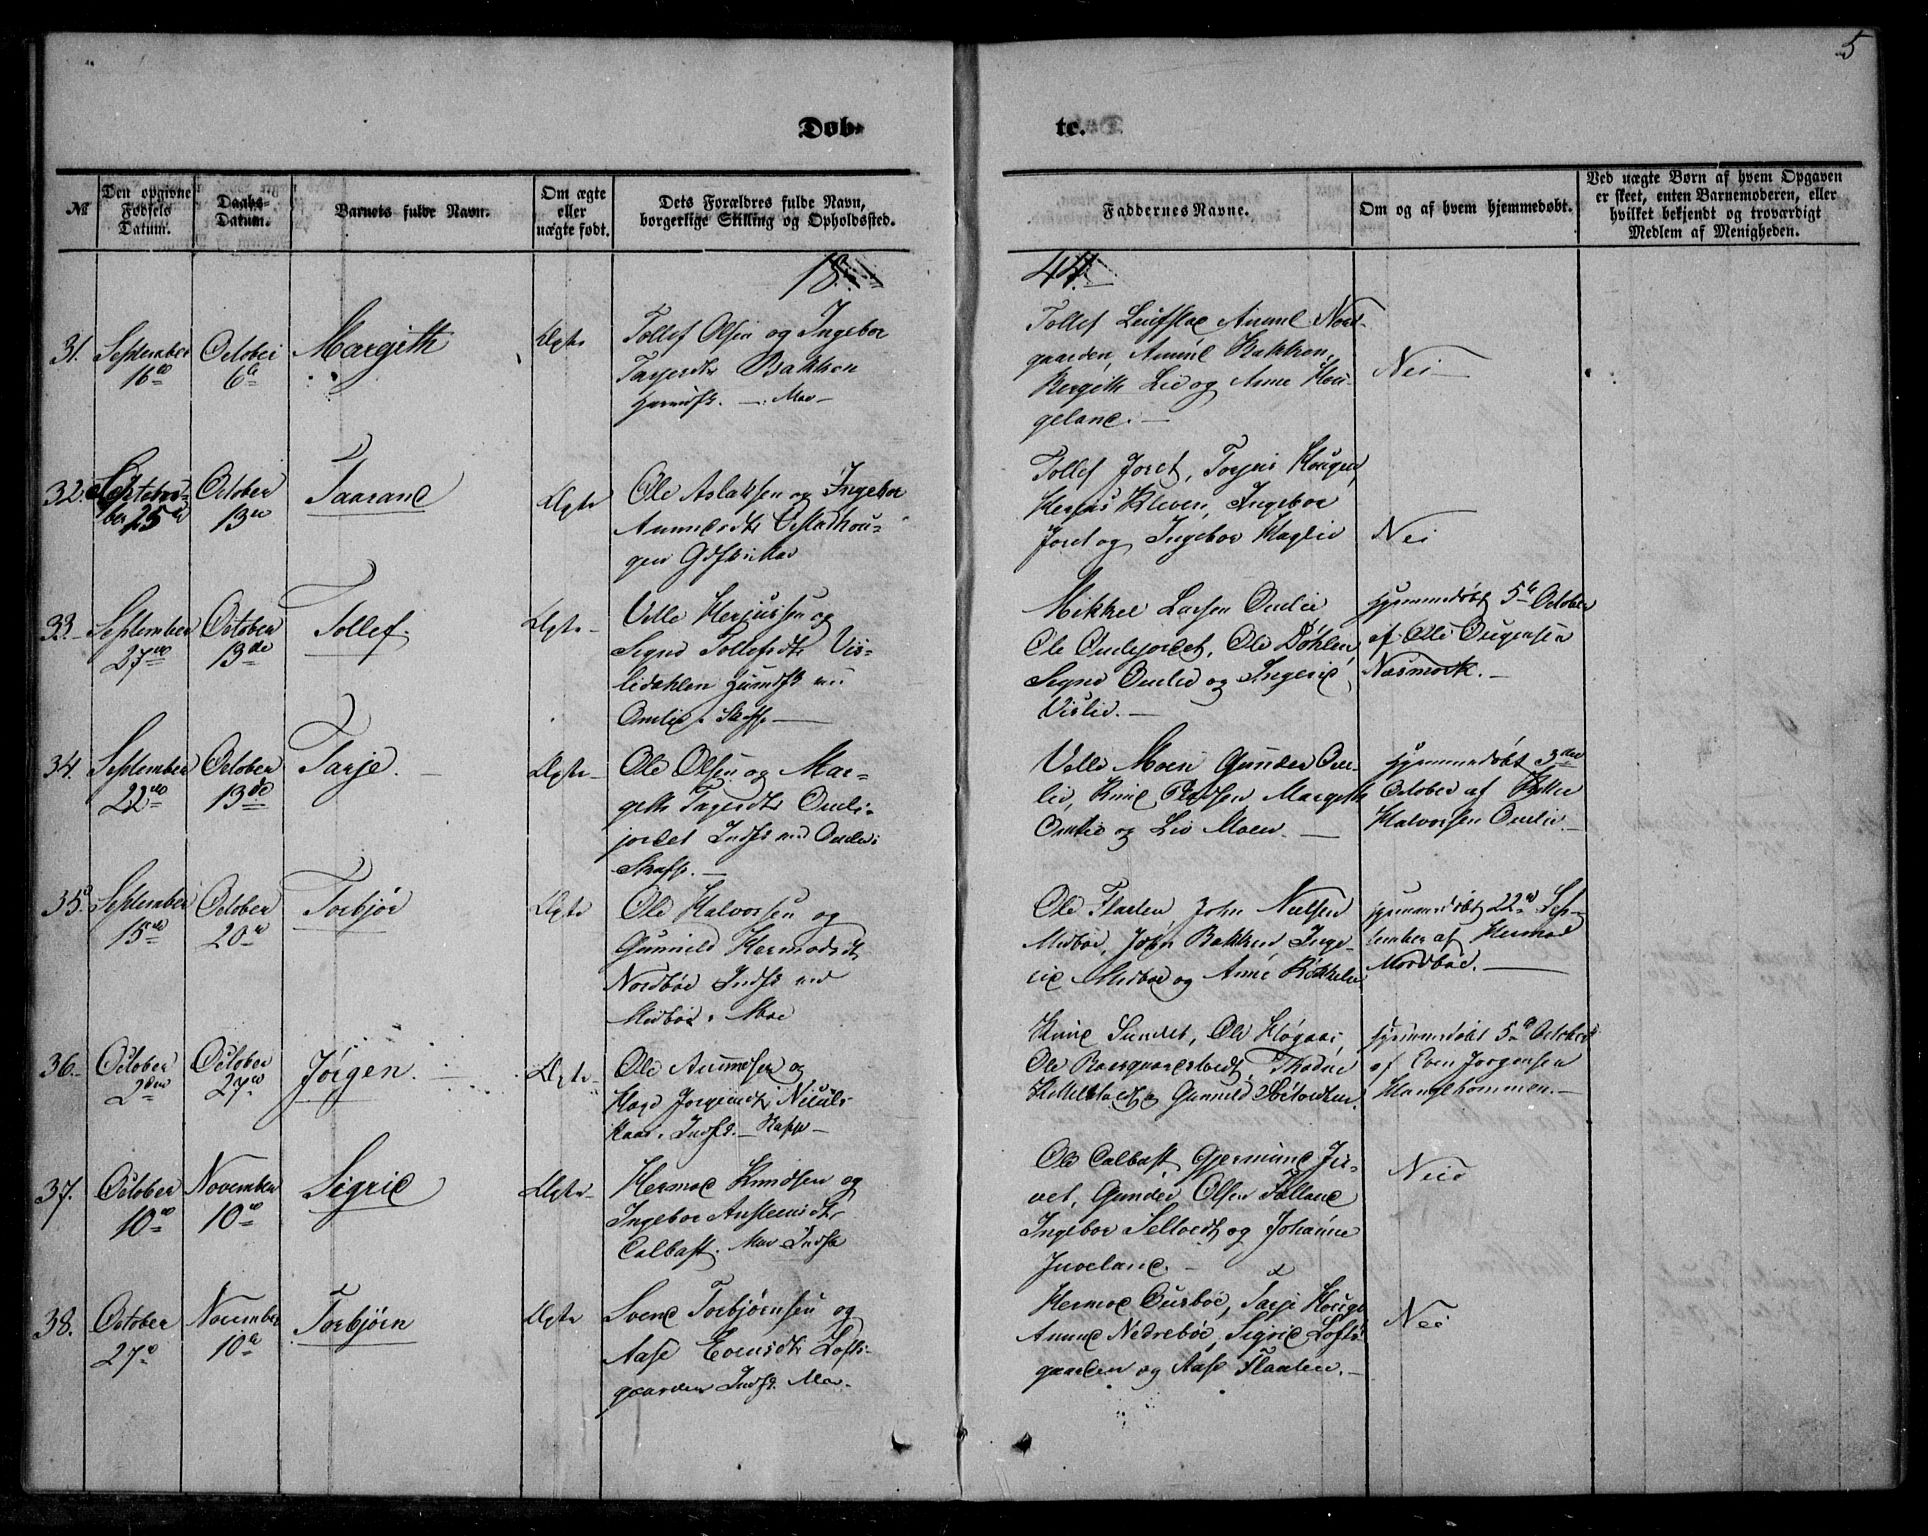 5
Døb-
te.
№
Den opgivne
Fødsels
Datum.
Daabs-
Datum.
Barnets fulde Navn.
Om ægte
eller
uægte født.
Dets Forældres fulde Navn,
borgerlige Stilling og Opholdssted.
Faddernes Navne.
Om og af hvem hjemmedøbt.
Ved uægte Børn af hvem Opgaven
er skeet, enten Barnemoderen, eller
hvilket bekjendt og troværdigt
Medlem af Menigheden.
18
44.
31. September
16de
October
6te
Margith
Ægte
Tollef Olsen og Ingebor
Tarjersdtr Bakken
Huusfk. — Moe —
Tollef Leifstad Aanund Nord-
gaarden, Aanund Bakken,
Bergith Lid og Anne Hou-
geland. —
Nei —
32. Septem-
ber 25de
October
13de
Taarand
Ægte
Ole Aslaksen og Ingebor
Aanundsdtr Østerhou-
gen Gdfk. Moe
Tollef Joret, Torjus Hougen,
Herjus Kleven, Ingebor
Joret og Ingebor Haglid
Nei
33. September
27de
October
13de
Tollef.
Ægte —
Ville Herjussen og
Signe Tollefsdtr Vis-
lidahlen Huusfk ved
Omlid. Skafs. —
Mikkel Larsen Omlid
Ole Omlejordet, Ole Døhlen,
Signe Omlid og Ingerid
Vislid. —
Hjemmedøbt 5te October
af Ole Ougensen
Næsmork. —
34. September
22de
October
13de
Tarje. —
Ægte —
Ole Olsen og Mar-
geth Tarjersdtr Omli-
jordet Indfk. ved Omlid i
Skafs. —
Velle Moen Gunder Om-
lid, Knud Olsen Margeth
Omlid og Liv Moen. —
Hjemmedøbt 3den
October af Petter
Halvorsen Omlid —
35. September
15de
October
20de
Torbjør
Ægte
Ole Halvorsen og
Gunnild Hermodsdtr
Nordbøe Indfk ved
Midbøe. Moe
Ole Flaten, John Nielsen
Midbøe, John Bakken, Inge-
rid Midbøe og Anne Kokkelie
Hjemmedøbt 22de Sep-
tember af Hermod
Nordbøe. —
36. October
2den
October
27de
Jørgen. —
Ægte —
Ole Aanundsen og
Hage Jørgensdtr
Indfk. — Rapp —
Knud Sundet, Ole
Ole
og Gunnild
Hjemmedøbt 5te October
af Even Jørgensen
Haugehommen. —
37. October
10de
November
10de
Sigrid
Ægte —
Hermod Knudsen og
Ingebor Austensdtr
Calbast. Moe Indfk
Ole Calbast, Gjermund Ju-
vet, Gunder Olsen Tolland
Ingebor Selvedt og Johanne
Juveland. —
Neid
38. October
27de
November
10de
Torbjørn
Ægte
Svend Torbjørnsen og
Aase Evensdtr Lofts-
gaarden Indfk. Moe.
Hermod Ousbøe, Tarje Houge
Aanund Nedrebøe, Sigrid Lofts-
gaarden og Aase Flaaten. —
Nei